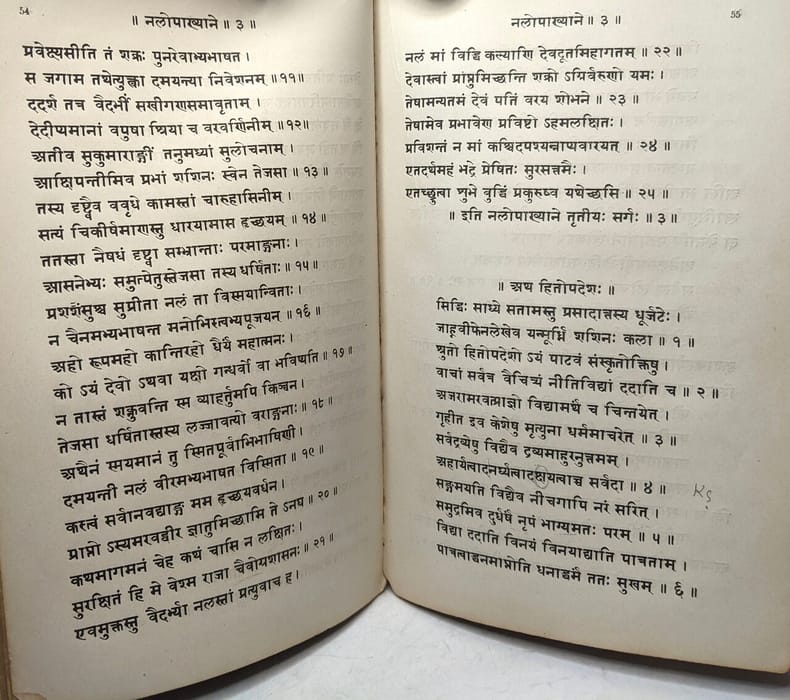 54
॥ नलोपाख्याने ॥ ३ ॥
प्रवेक्ष्यसीति तं शक्रः पुनरेवाभ्यभाषत ।
स जगाम तथेत्युक्त्वा दमयन्त्या निवेशनम् ॥ ११ ॥
ददर्श तत्र वैदर्भीं सखीगणसमावृताम् ।
देदीप्यमानां वपुषा श्रिया च वरवर्णिनीम् ॥ १२ ॥
अतीव सुकुमाराङ्गीं तनुमध्यां सुलोचनाम् ।
आक्षिपन्तीमिव प्रभां शशिनः स्वेन तेजसा ॥ १३ ॥
तस्य दृष्ट्वैव ववृधे कामस्तां चारुहासिनीम् ।
सत्यं चिकीर्षमाणस्तु धारयामास हृच्छयम् ॥ १४ ॥
ततस्ता नैषधं दृष्ट्वा सम्भ्रान्ताः परमाङ्गनाः ।
आसनेभ्यः समुत्पेतुस्तेजसा तस्य धर्षिताः ॥ १५ ॥
प्रशशंसुश्च सुप्रीता नलं ता विस्मयान्विताः ।
न चैनमभ्यभाषन्त मनोभिस्त्वभ्यपूजयन् ॥ १६ ॥
अहो रूपमहो कान्तिरहो धैर्यं महात्मनः ।
को ऽयं देवो ऽथवा यक्षो गन्धर्वो वा भविष्यति ॥ १७ ॥
न तास्तं शक्नुवन्ति स्म व्याहर्तुमपि किञ्चन ।
तेजसा धर्षितास्तस्य लज्जावत्यो वराङ्गनाः ॥ १८ ॥
अथैनं स्मयमानं तु स्मितपूर्वाभिभाषिणी ।
दमयन्ती नलं वीरमभ्यभाषत विस्मिता ॥ १९ ॥
कस्त्वं सर्वानवद्याङ्ग मम हृच्छयवर्धन ।
प्राप्तो ऽस्यमरवद्वीर ज्ञातुमिच्छामि ते ऽनघ ॥ २० ॥
कथमागमनं चेह कथं चासि न लक्षितः ।
सुरक्षितं हि मे वेश्म राजा चैवोग्रशासनः ॥ २१ ॥
एवमुक्तस्तु वैदर्भ्या नलस्तां प्रत्युवाच ह ।
55
नलोपाख्याने ॥ ३ ॥
नलं मां विद्धि कल्याणि देवदूतमिहागतम् ॥ २२ ॥
देवास्त्वां प्राप्तुमिच्छन्ति शक्रो ऽग्निर्वरुणो यमः ।
तेषामन्यतमं देवं पतिं वरय शोभने ॥ २३ ॥
तेषामेव प्रभावेण प्रविष्टो ऽहमलक्षितः ।
प्रविशन्तं न मां कश्चिदपश्यन्नाप्यवारयत् ॥ २४ ॥
एतदर्थमहं भद्रे प्रेषितः सुरसत्तमैः ।
एतच्छ्रुत्वा शुभे बुद्धिं प्रकुरुष्व यथेच्छसि ॥ २५ ॥
॥ इति नलोपाख्याने तृतीयः सर्गः ॥ ३ ॥
॥ अथ हितोपदेशः ॥
सिद्धिः साध्ये सतामस्तु प्रसादात्तस्य धूर्जटेः ।
जाह्नवीफेनलेखेव यन्मूर्ध्नि शशिनः कला ॥ १ ॥
श्रुतो हितोपदेशो ऽयं पाटवं संस्कृतोक्तिषु ।
वाचां सर्वत्र वैचित्र्यं नीतिविद्यां ददाति च ॥ २ ॥
अजरामरवत्प्राज्ञो विद्यामर्थं च चिन्तयेत् ।
गृहीत इव केशेषु मृत्युना धर्ममाचरेत् ॥ ३ ॥
सर्वद्रव्येषु विद्यैव द्रव्यमाहुरनुत्तमम् ।
अहार्यत्वादनर्घ्यत्वादक्षयत्वाच्च सर्वदा ॥ ४ ॥
सङ्गमयति विद्यैव नीचगापि नरं सरित् ।
समुद्रमिव दुर्धर्षं नृपं भाग्यमतः परम् ॥ ५ ॥
विद्या ददाति विनयं विनयाद्याति पात्रताम् ।
पात्रत्वाद्धनमाप्नोति धनाद्धर्मं ततः सुखम् ॥ ६ ॥